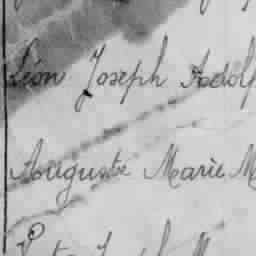 Léon Joseph Adolp
Auguste Marie M